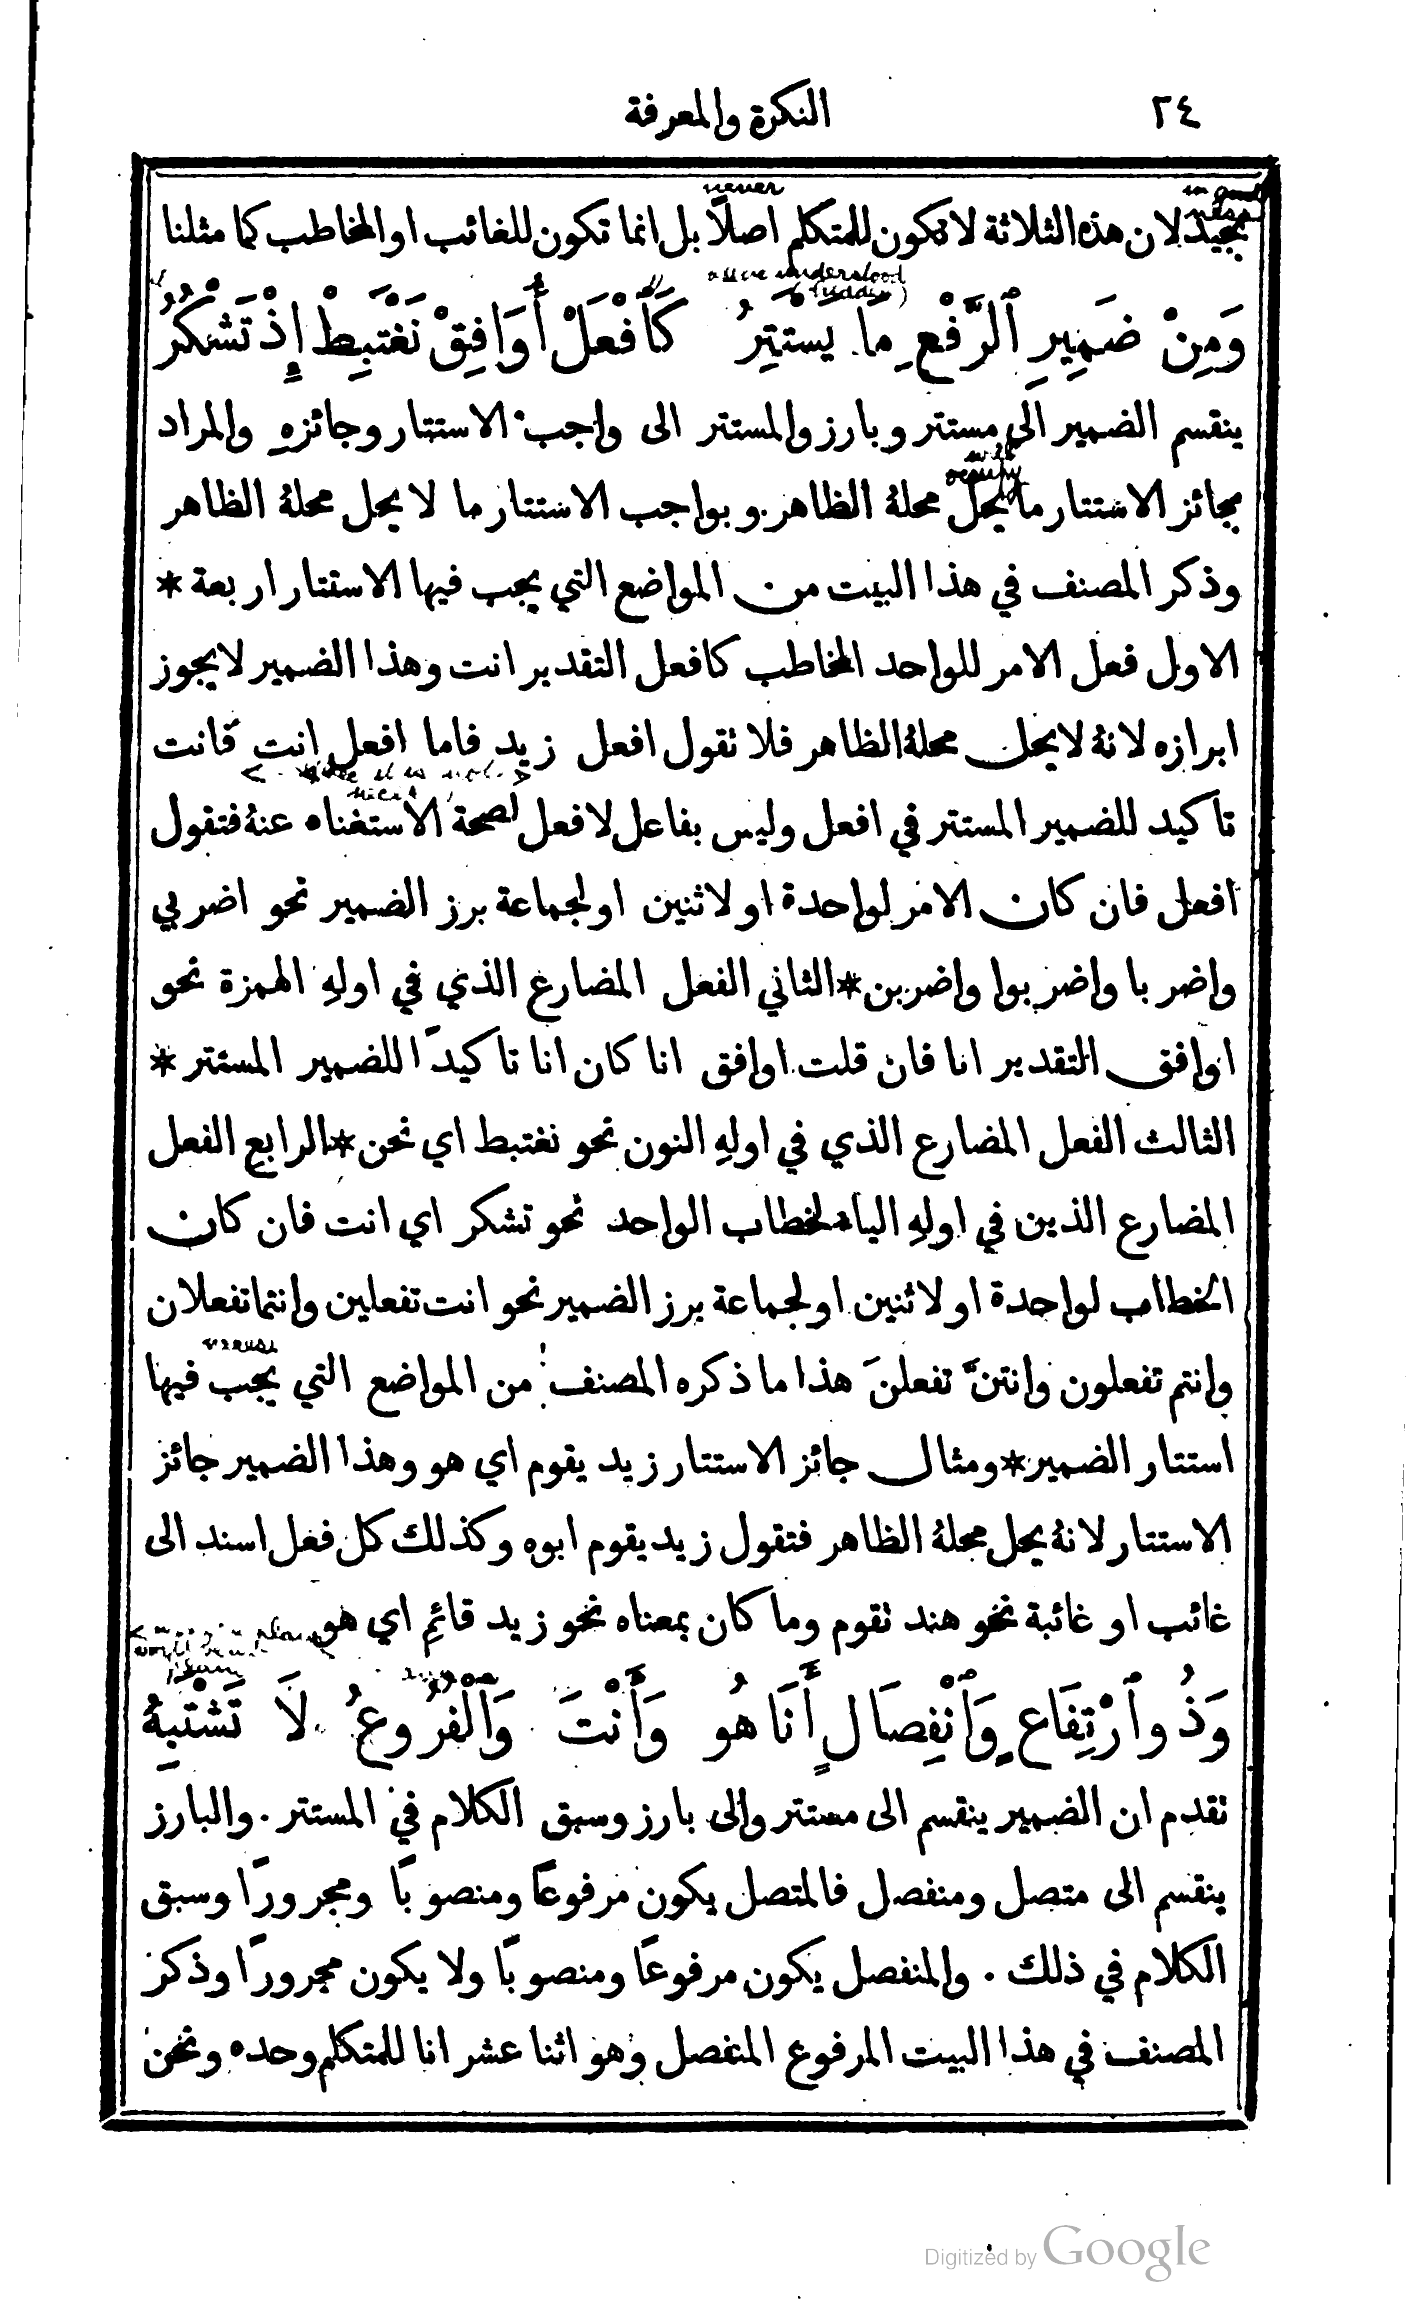 ٢٤ النكرة والمعرفة
never
بجيد لان هذه الثلاثة لا تكون للمتكلم اصلاً بل انما تكون للغائب او المخاطب كما مثلنا
understood
وَمِنْ ضَمِيرِ ٱلرَّفْعِ مَا يَسْتَتِرُ كَٱفْعَلْ أُوَافِقْ نَغْتَبِطْ إِذْ تَشْكُرُ
ينقسم الضمير الى مستتر وبارز والمستتر الى واجب الاستتار وجائزه والمراد
بجائز الاستتار ما يحل محلهُ الظاهر. وبواجب الاستتار ما لا يحل محلهُ الظاهر
وذكر المصنف في هذا البيت من المواضع التي يجب فيها الاستتار اربعة *
الاول فعل الامر للواحد المخاطب كافعل التقدير انت وهذا الضمير لا يجوز
ابرازه لانهُ لا يحل محلهُ الظاهر فلا نقول افعل زيد فاما افعل انت فانت
تاكيد للضمير المستتر في افعل وليس بفاعل لافعل لصحة الاستغناه عنهُ فتقول
افعل فان كان الامر لواحدة او لاثنين او لجماعة برز الضمير نحو اضربي
واضربا واضربوا واضربن * الثاني الفعل المضارع الذي في اولهِ الهمزة نحو
اوافق التقدير انا فان قلت اوافق انا كان انا تاكيداً للضمير المستتر *
الثالث الفعل المضارع الذي في اولهِ النون نحو نغتبط اي نحن * الرابع الفعل
المضارع الذين في اولهِ التاء لخطاب الواحد نحو تشكر اي انت فان كان
الخطاب لواحدة او لاثنين او لجماعة برز الضمير نحو انت تفعلين وانتما تفعلان
وانتم تفعلون وانتنَّ تفعلنَ هذا ما ذكره المصنف من المواضع التي يجب فيها
استتار الضمير * ومثال جائز الاستتار زيد يقوم اي هو وهذا الضمير جائز
الاستتار لانهُ يحل محلهُ الظاهر فتقول زيد يقوم ابوه وكذلك كل فعل اسند الى
غائب او غائبة نحو هند نقوم وما كان بمعناه نحو زيد قائمِ اي هو
وَذُو ٱرْتِفَاعٍ وَٱنْفِصَالٍ أَنَا هُو وَأَنْتَ وَٱلْفُرُوعُ لَا تَشْتَبِهُ
نقدم ان الضمير ينقسم الى مستتر والى بارز وسبق الكلام في المستتر. والبارز
ينقسم الى متصل ومنفصل فالمتصل يكون مرفوعاً ومنصوباً ومجروراً وسبق
الكلام في ذلك. والمنفصل يكون مرفوعاً ومنصوباً ولا يكون مجروراً وذكر
المصنف في هذا البيت المرفوع المنفصل وهو اثنا عشر انا للمتكلم وحده ونحن
Digitized by Google